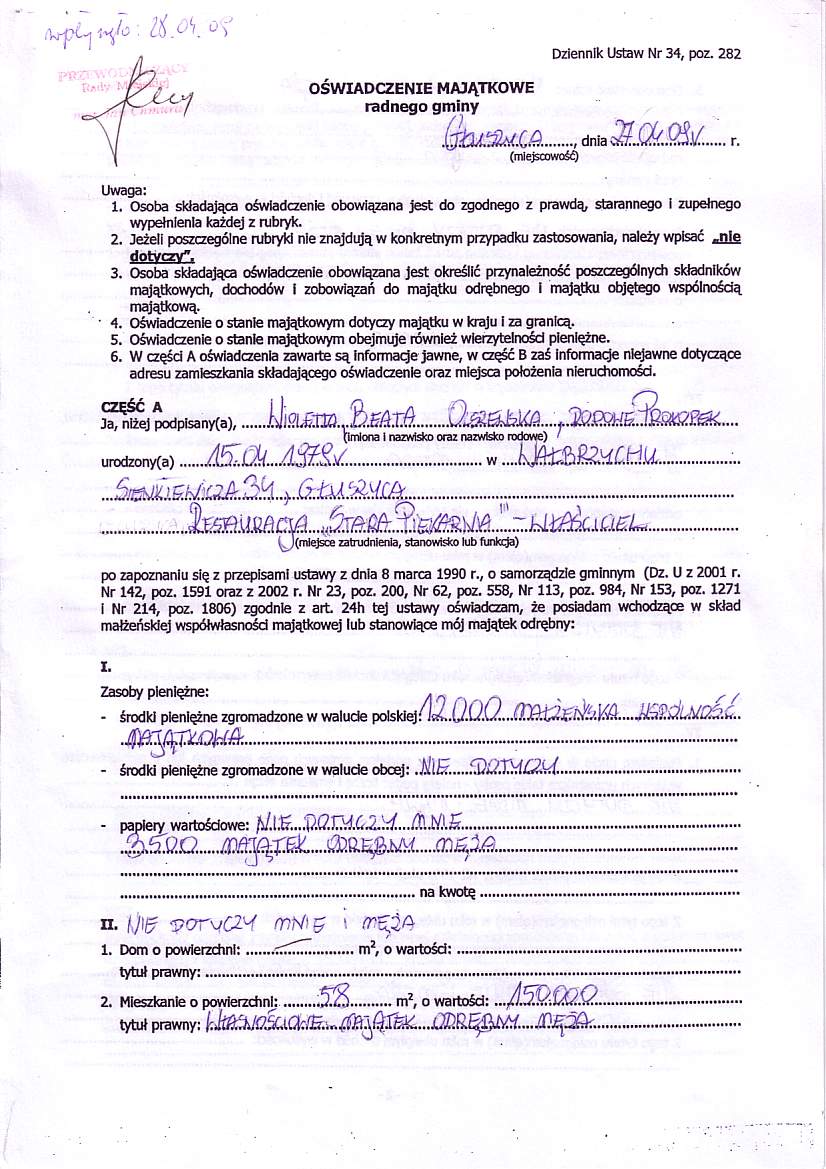 wpłynęło: 28.04.09
Dziennik Ustaw Nr 34, poz. 282
PRZEWODNICZĄCY
Rady Miejskiej
OŚWIADCZENIE MAJĄTKOWE
radnego gminy
GŁUSZYCA, dnia 27.04.09r. r.
(miejscowość)
Uwaga:
1. Osoba składająca oświadczenie obowiązana jest do zgodnego z prawdą, starannego i zupełnego
wypełnienia każdej z rubryk.
2. Jeżeli poszczególne rubryki nie znajdują w konkretnym przypadku zastosowania, należy wpisać „nie
dotyczy".
3. Osoba składająca oświadczenie obowiązana jest określić przynależność poszczególnych składników
majątkowych, dochodów i zobowiązań do majątku odrębnego i majątku objętego wspólnością
majątkową.
4. Oświadczenie o stanie majątkowym dotyczy majątku w kraju i za granicą.
5. Oświadczenie o stanie majątkowym obejmuje również wierzytelności pieniężne.
6. W części A oświadczenia zawarte są informacje jawne, w część B zaś informacje niejawne dotyczące
adresu zamieszkania składającego oświadczenie oraz miejsca położenia nieruchomości.
CZĘŚĆ A
Ja, niżej podpisany(a), WIOLETTA, BEATA OLSZEWSKA, RODOWE PROKOPEK
(imiona i nazwisko oraz nazwisko rodowe)
urodzony(a) 15.04.1979r w WAŁBRZYCHU
SIENKIEWICZA 34, GŁUSZYCA
RESTAURACJA "STARA PIEKARNIA" - WŁAŚCICIEL
(miejsce zatrudnienia, stanowisko lub funkcja)
po zapoznaniu się z przepisami ustawy z dnia 8 marca 1990 r., o samorządzie gminnym (Dz. U z 2001 r.
Nr 142, poz. 1591 oraz z 2002 r. Nr 23, poz. 200, Nr 62, poz. 558, Nr 113, poz. 984, Nr 153, poz. 1271
i Nr 214, poz. 1806) zgodnie z art. 24h tej ustawy oświadczam, że posiadam wchodzące w skład
małżeńskiej współwłasności majątkowej lub stanowiące mój majątek odrębny:
I.
Zasoby pieniężne:
- środki pieniężne zgromadzone w walucie polskiej: 12.000 MAŁŻEŃSKA WSPÓLNOŚĆ
MAJĄTKOWA
- środki pieniężne zgromadzone w walucie obcej: NIE DOTYCZY
- papiery wartościowe: NIE DOTYCZY MNIE
3500 MAJĄTEK ODRĘBNY MĘŻA
na kwotę
II. NIE DOTYCZY MNIE I MĘŻA
1. Dom o powierzchni: — m², o wartości:
tytuł prawny:
2. Mieszkanie o powierzchni: 58 m², o wartości: 150.000
tytuł prawny: WŁASNOŚCIOWE MAJĄTEK ODRĘBNY MĘŻA